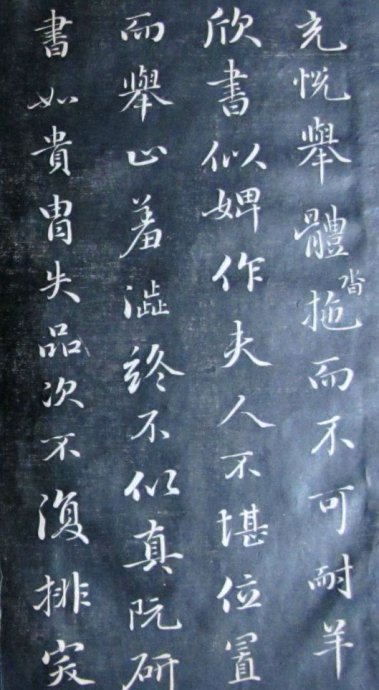 充悅舉體沓拖而不可耐羊
欣書似婢作夫人不堪位置
而舉止羞澁終不似真阮研
書如貴胄失品次不復排突